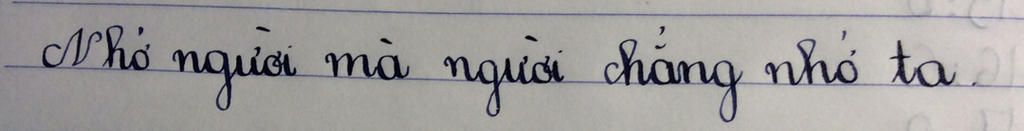 Nhớ người mà người chẳng nhớ ta.